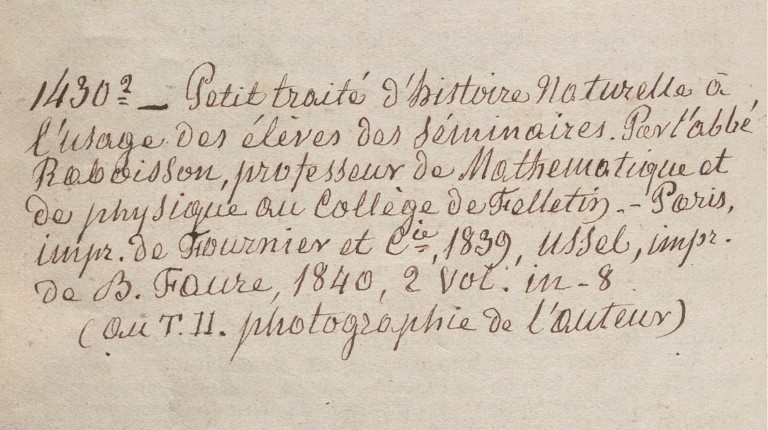 1430² — Petit traité d'histoire Naturelle à
l'usage des élèves des séminaires. Par l'abbé
Raboisson, professeur de Mathematique et
de physique au Collège de Felletin. - Paris,
impr. de Fournier et Cie, 1839, Ussel, impr.
de B. Faure, 1840, 2 Vol. in-8
(au T. II. photographie de l'auteur)